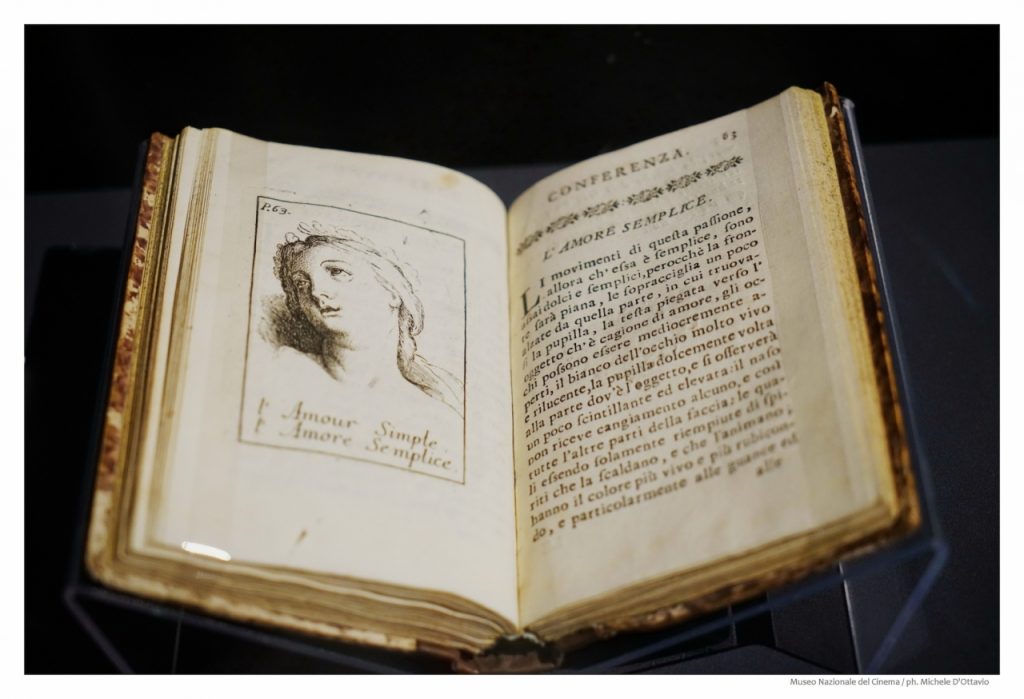 P. 63.
l' Amour Simple
l' Amore Semplice.
63
CONFERENZA.
L'AMORE SEMPLICE.
LI movimenti di queſta paſſione,
allora ch'eſſa è ſemplice, ſono
aſſai dolci e ſemplici, perocchè la fron-
te ſarà piana, le ſopracciglia un poco
alzate da quella parte, in cui truova-
ſi la pupilla, la teſta piegata verſo l'
oggetto ch'è cagione di amore, gli oc-
chi poſſono eſſere mediocremente a-
perti, il bianco dell'occhio molto vivo
e rilucente, la pupilla dolcemente volta
alla parte dov'è l'oggetto, e ſi oſſerverà
un poco ſcintillante ed elevata: il naſo
non riceve cangiamento alcuno, e così
tutte l'altre parti della faccia; le qua-
li eſſendo ſolamente riempiute di ſpi-
riti che la ſcaldano, e che l'animano,
hanno il colore più vivo e più rubicon-
do, e particolarmente alle guance ed
alle
Museo Nazionale del Cinema / ph. Michele D'Ottavio